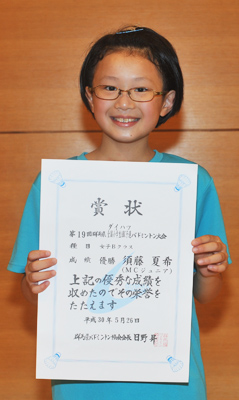 賞状
ダイハツ
第19回群馬県小学生バドミントン大会
種目 女子Bクラス
成績 優勝 須藤 夏希
(MCジュニア)
上記の優秀な成績を
収めたのでその栄誉を
たたえます
平成30年5月26日
群馬県バドミントン協会会長 日野 昇